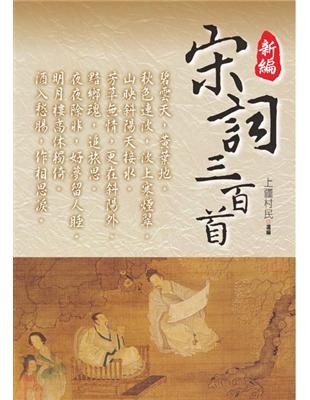 新編
宋詞三百首
上疆村民 選編
碧雲天，黃葉地。
秋色連波，波上寒煙翠。
山映斜陽天接水。
芳草無情，更在斜陽外。
黯鄉魂，追旅思。
夜夜除非，好夢留人睡。
明月樓高休獨倚。
酒入愁腸，化作相思淚。